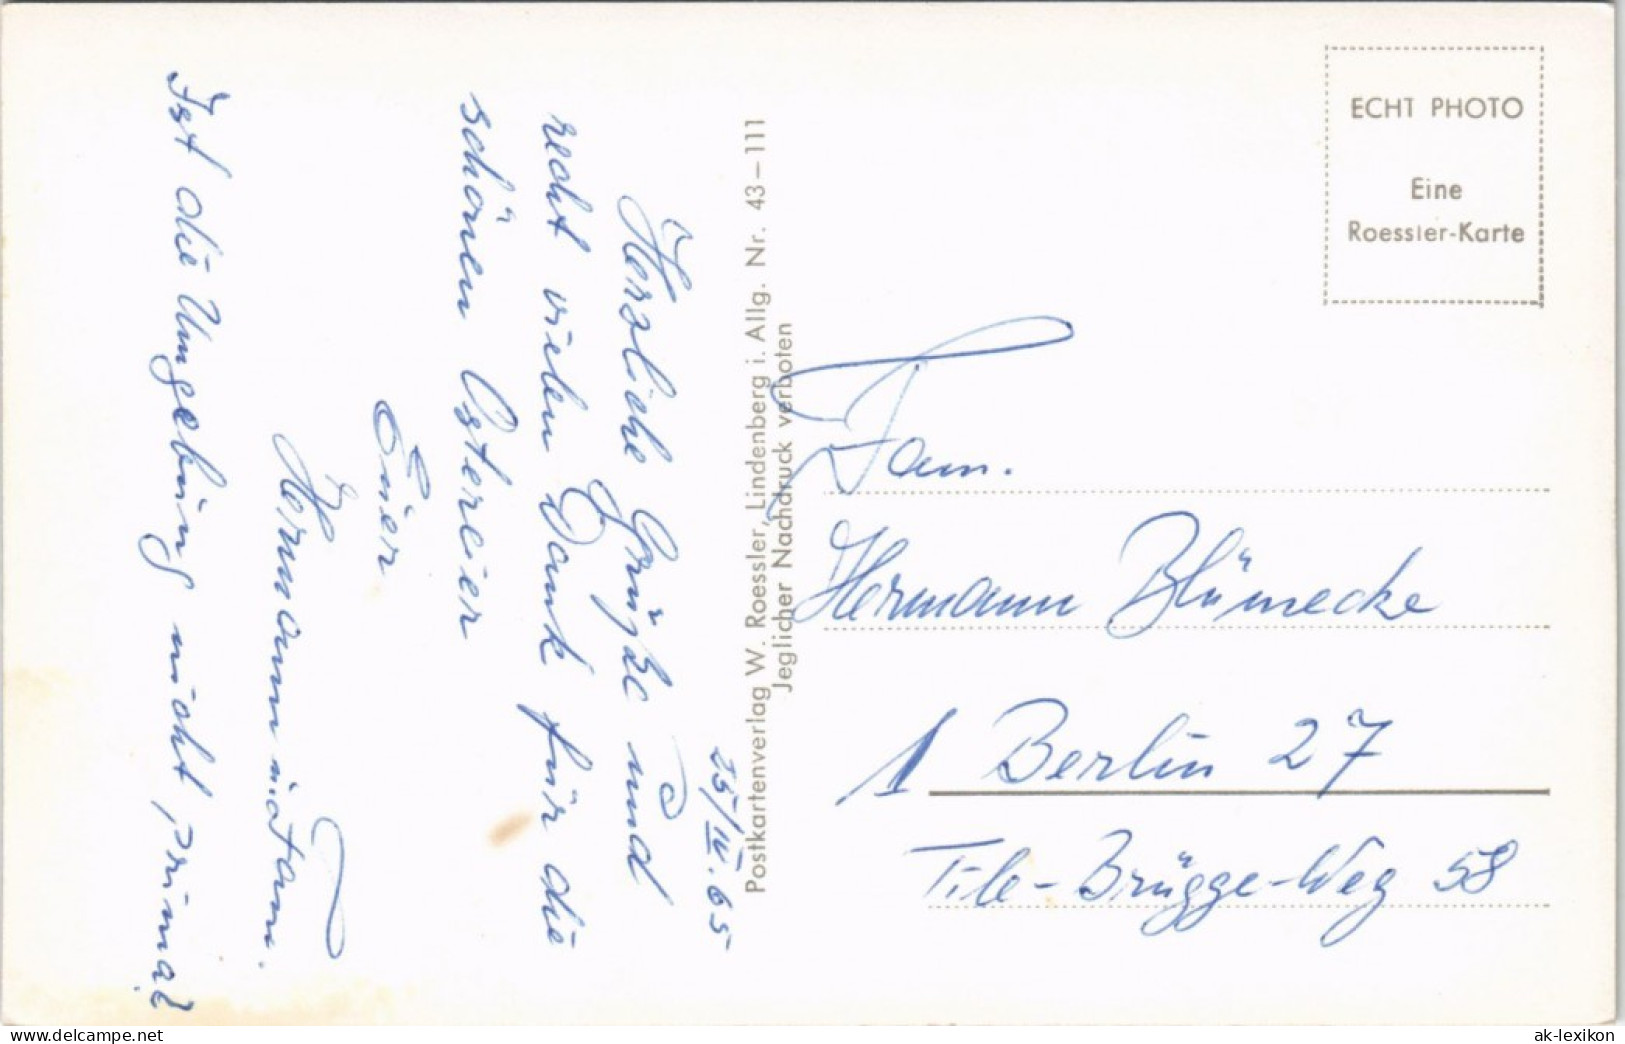 25/IV. 65
Herzliche Grüße und
recht vielen Dank für die
schönen Ostereier
Euer
Hermann u. Fam.
Ist die Umgebung nicht prima?
Postkartenverlag W. Roessler, Lindenberg i. Allg. Nr. 43–111
Jeglicher Nachdruck verboten
ECHT PHOTO
Eine
Roessler-Karte
Fam.
Hermann Blümecke
1 Berlin 27
Tile-Brügge-Weg 58
www.delcampe.net
ak-lexikon